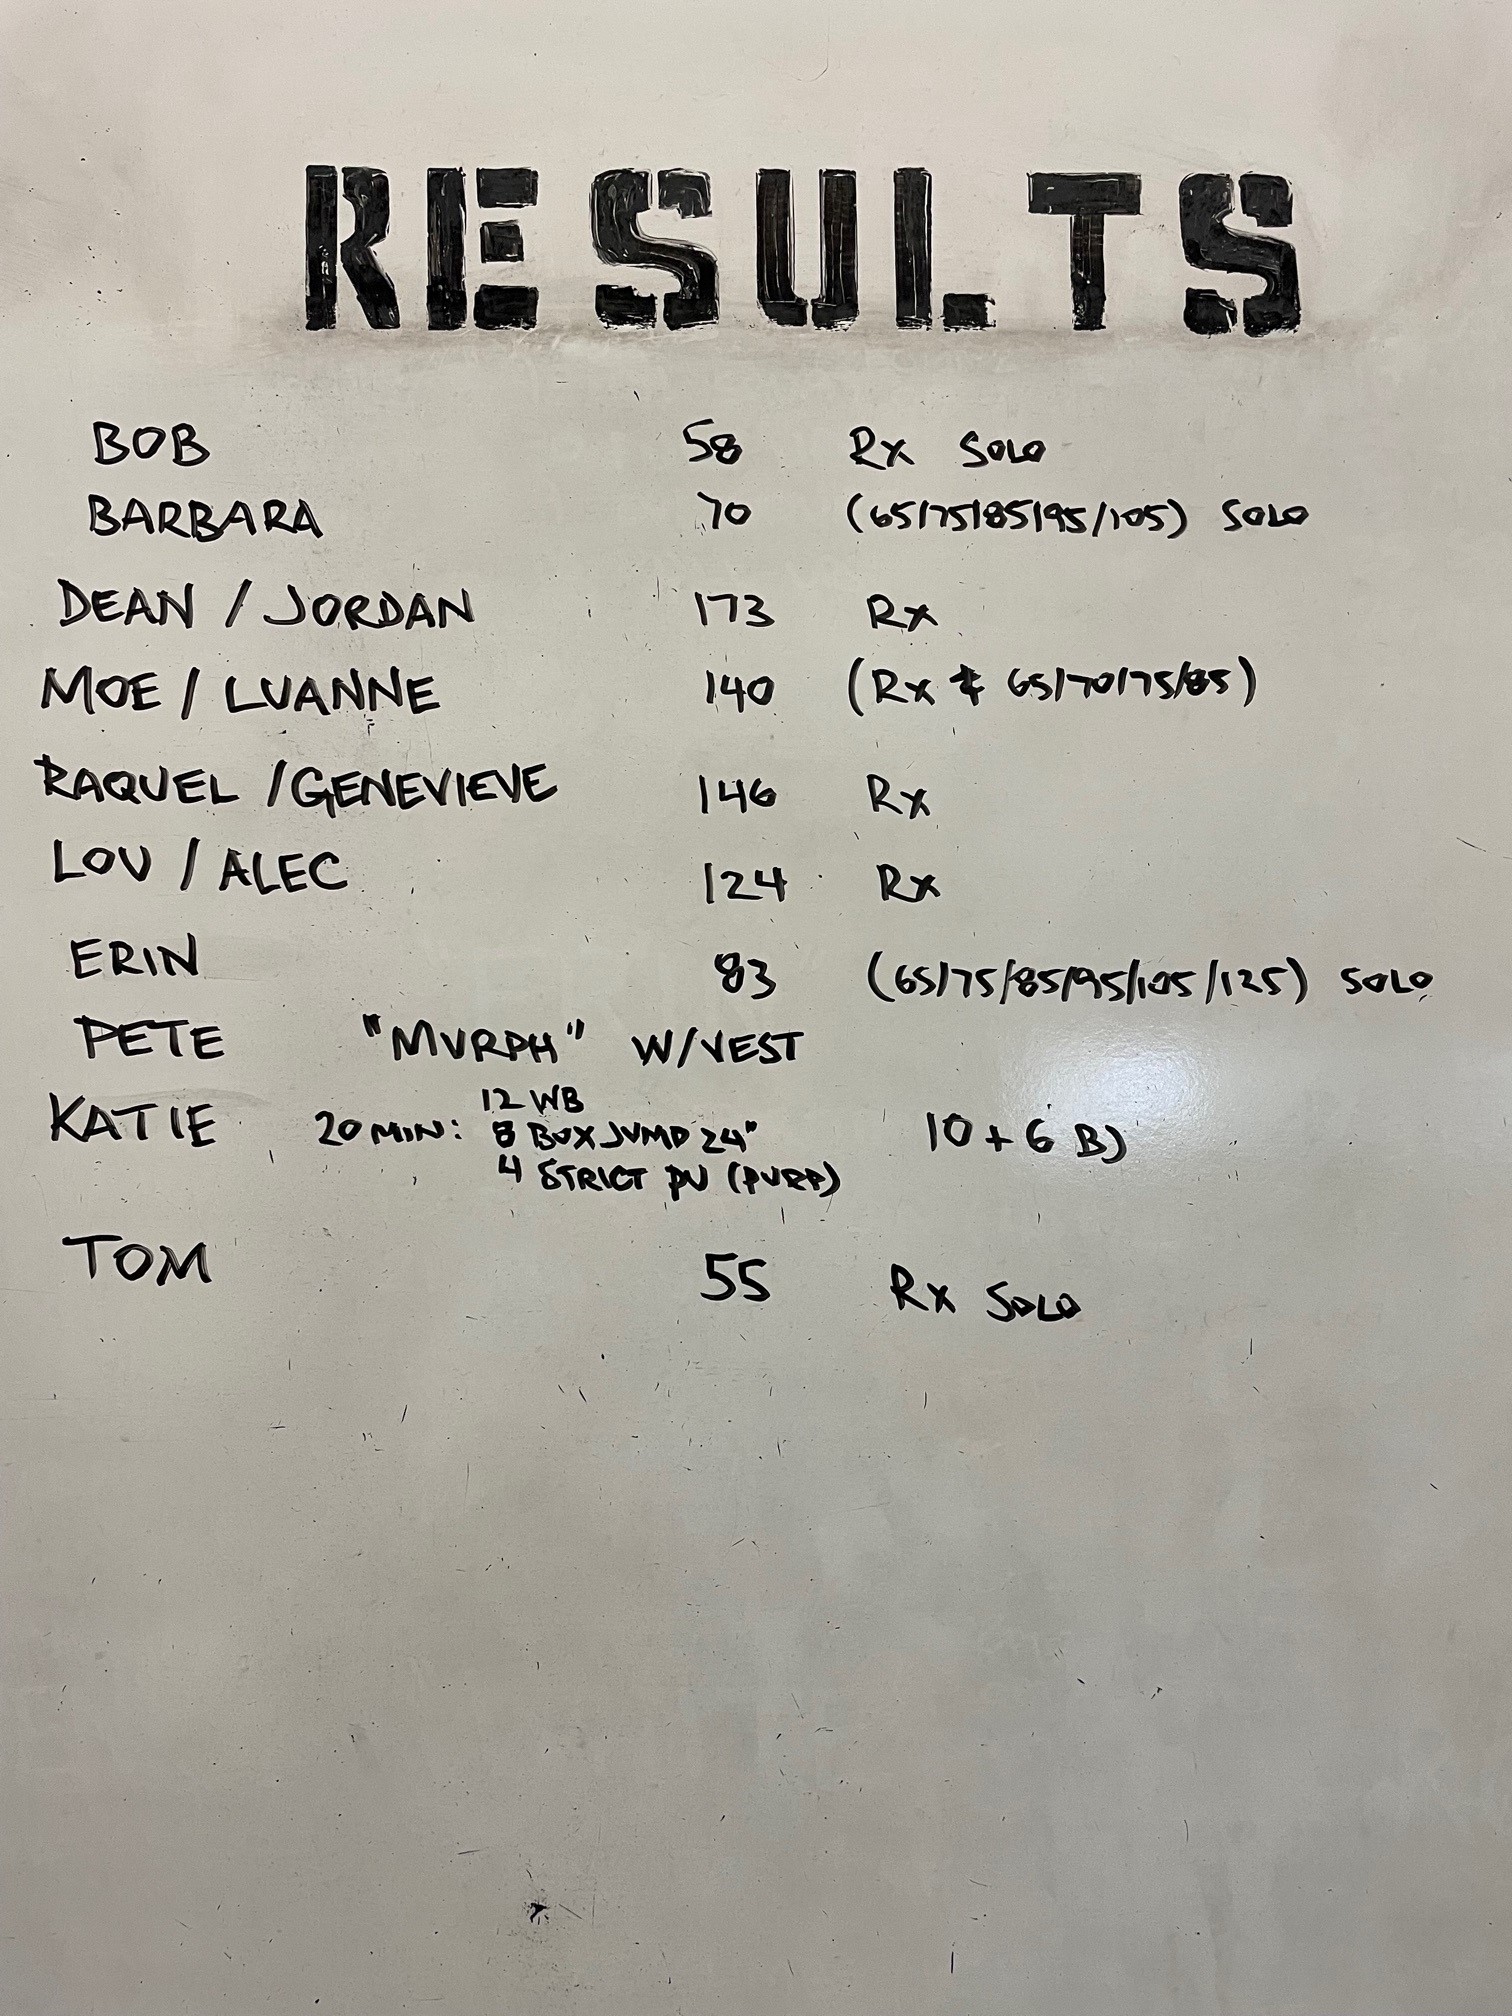 RESULTS
BOB 58 Rx SOLO
BARBARA 70 (65/75/85/95/105) SOLO
DEAN / JORDAN 173 Rx
MOE / LUANNE 140 (Rx & 65/70/75/85)
RAQUEL / GENEVIEVE 146 Rx
LOU / ALEC 124 Rx
ERIN 83 (65/75/85/95/105/125) SOLO
PETE "MURPH" W/VEST
KATIE 20 MIN: 12 WB
8 BOX JUMP 24" 10 + 6 BJ
4 STRICT PU (PURP)
TOM 55 Rx SOLO